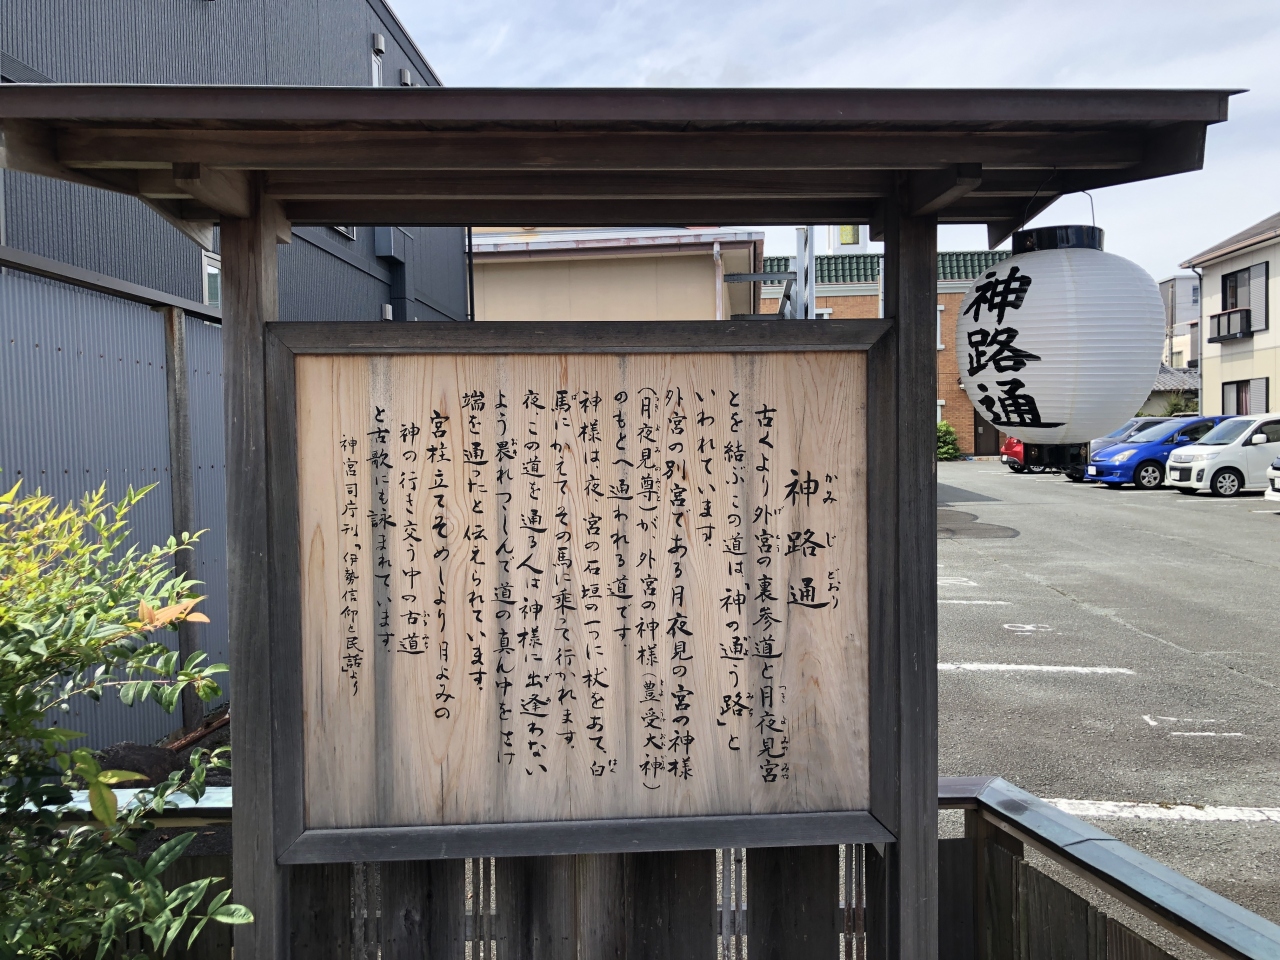 神路通
かみじどおり
古くより外宮の裏参道と月夜見宮
げくう
つきよみのみや
とを結ぶこの道は、「神の通う路」と
みち
いわれています。
外宮の別宮である月夜見の宮の神様
(月夜見尊)が、外宮の神様(豊受大神)
のもとへ通われる道です。
神様は、夜、宮の石垣の一つに杖をあて、白
馬にかえてその馬に乗って行かれます。
夜この道を通る人は神様に出逢わない
よう畏れつつしんで道の真ん中をさけ
端を通ったと伝えられています。
宮柱立てそめしより月よみの
神の行き交う中の古道
と古歌にも詠まれています。
神宮司庁刊「伊勢信仰と民話」より
神路通